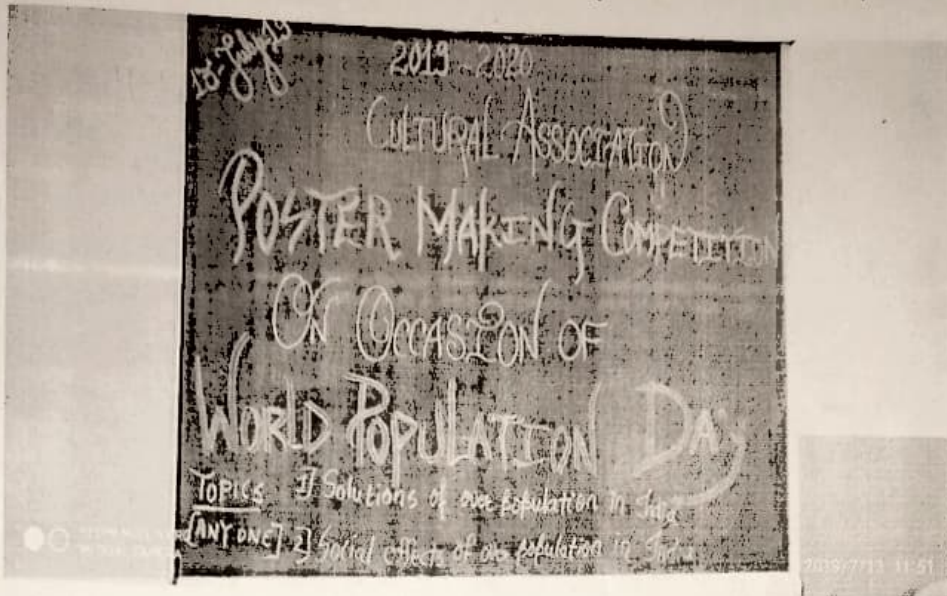 13-July-19
2019-2020
CULTURAL ASSOCIATION
POSTER MAKING COMPETITION
ON OCCASION OF
WORLD POPULATION DAy
TOPICS 1] Solutions of over population in India
[ANY ONE] 2] Social effects of over population in India
2019/7/13 11:51